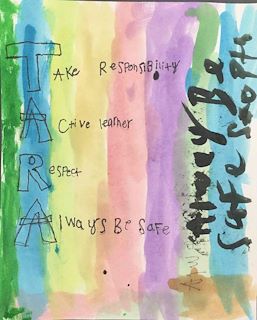 TAKE RESPONSIBILITY
ACtive learner
Respect
Always Be Safe
Be
Safe